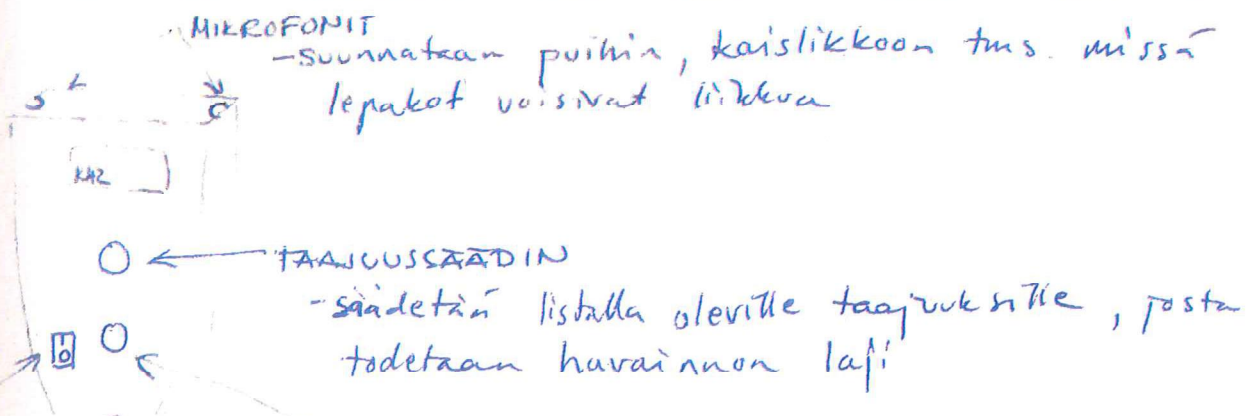 MIKROFONIT
-Suunnataan puihin, kaislikkoon tms. missä
lepakot voisivat liikkua
KHZ
TAAJUUSSÄÄDIN
-säädetään listalla oleville taajuuksille, josta
todetaan havainnon laji